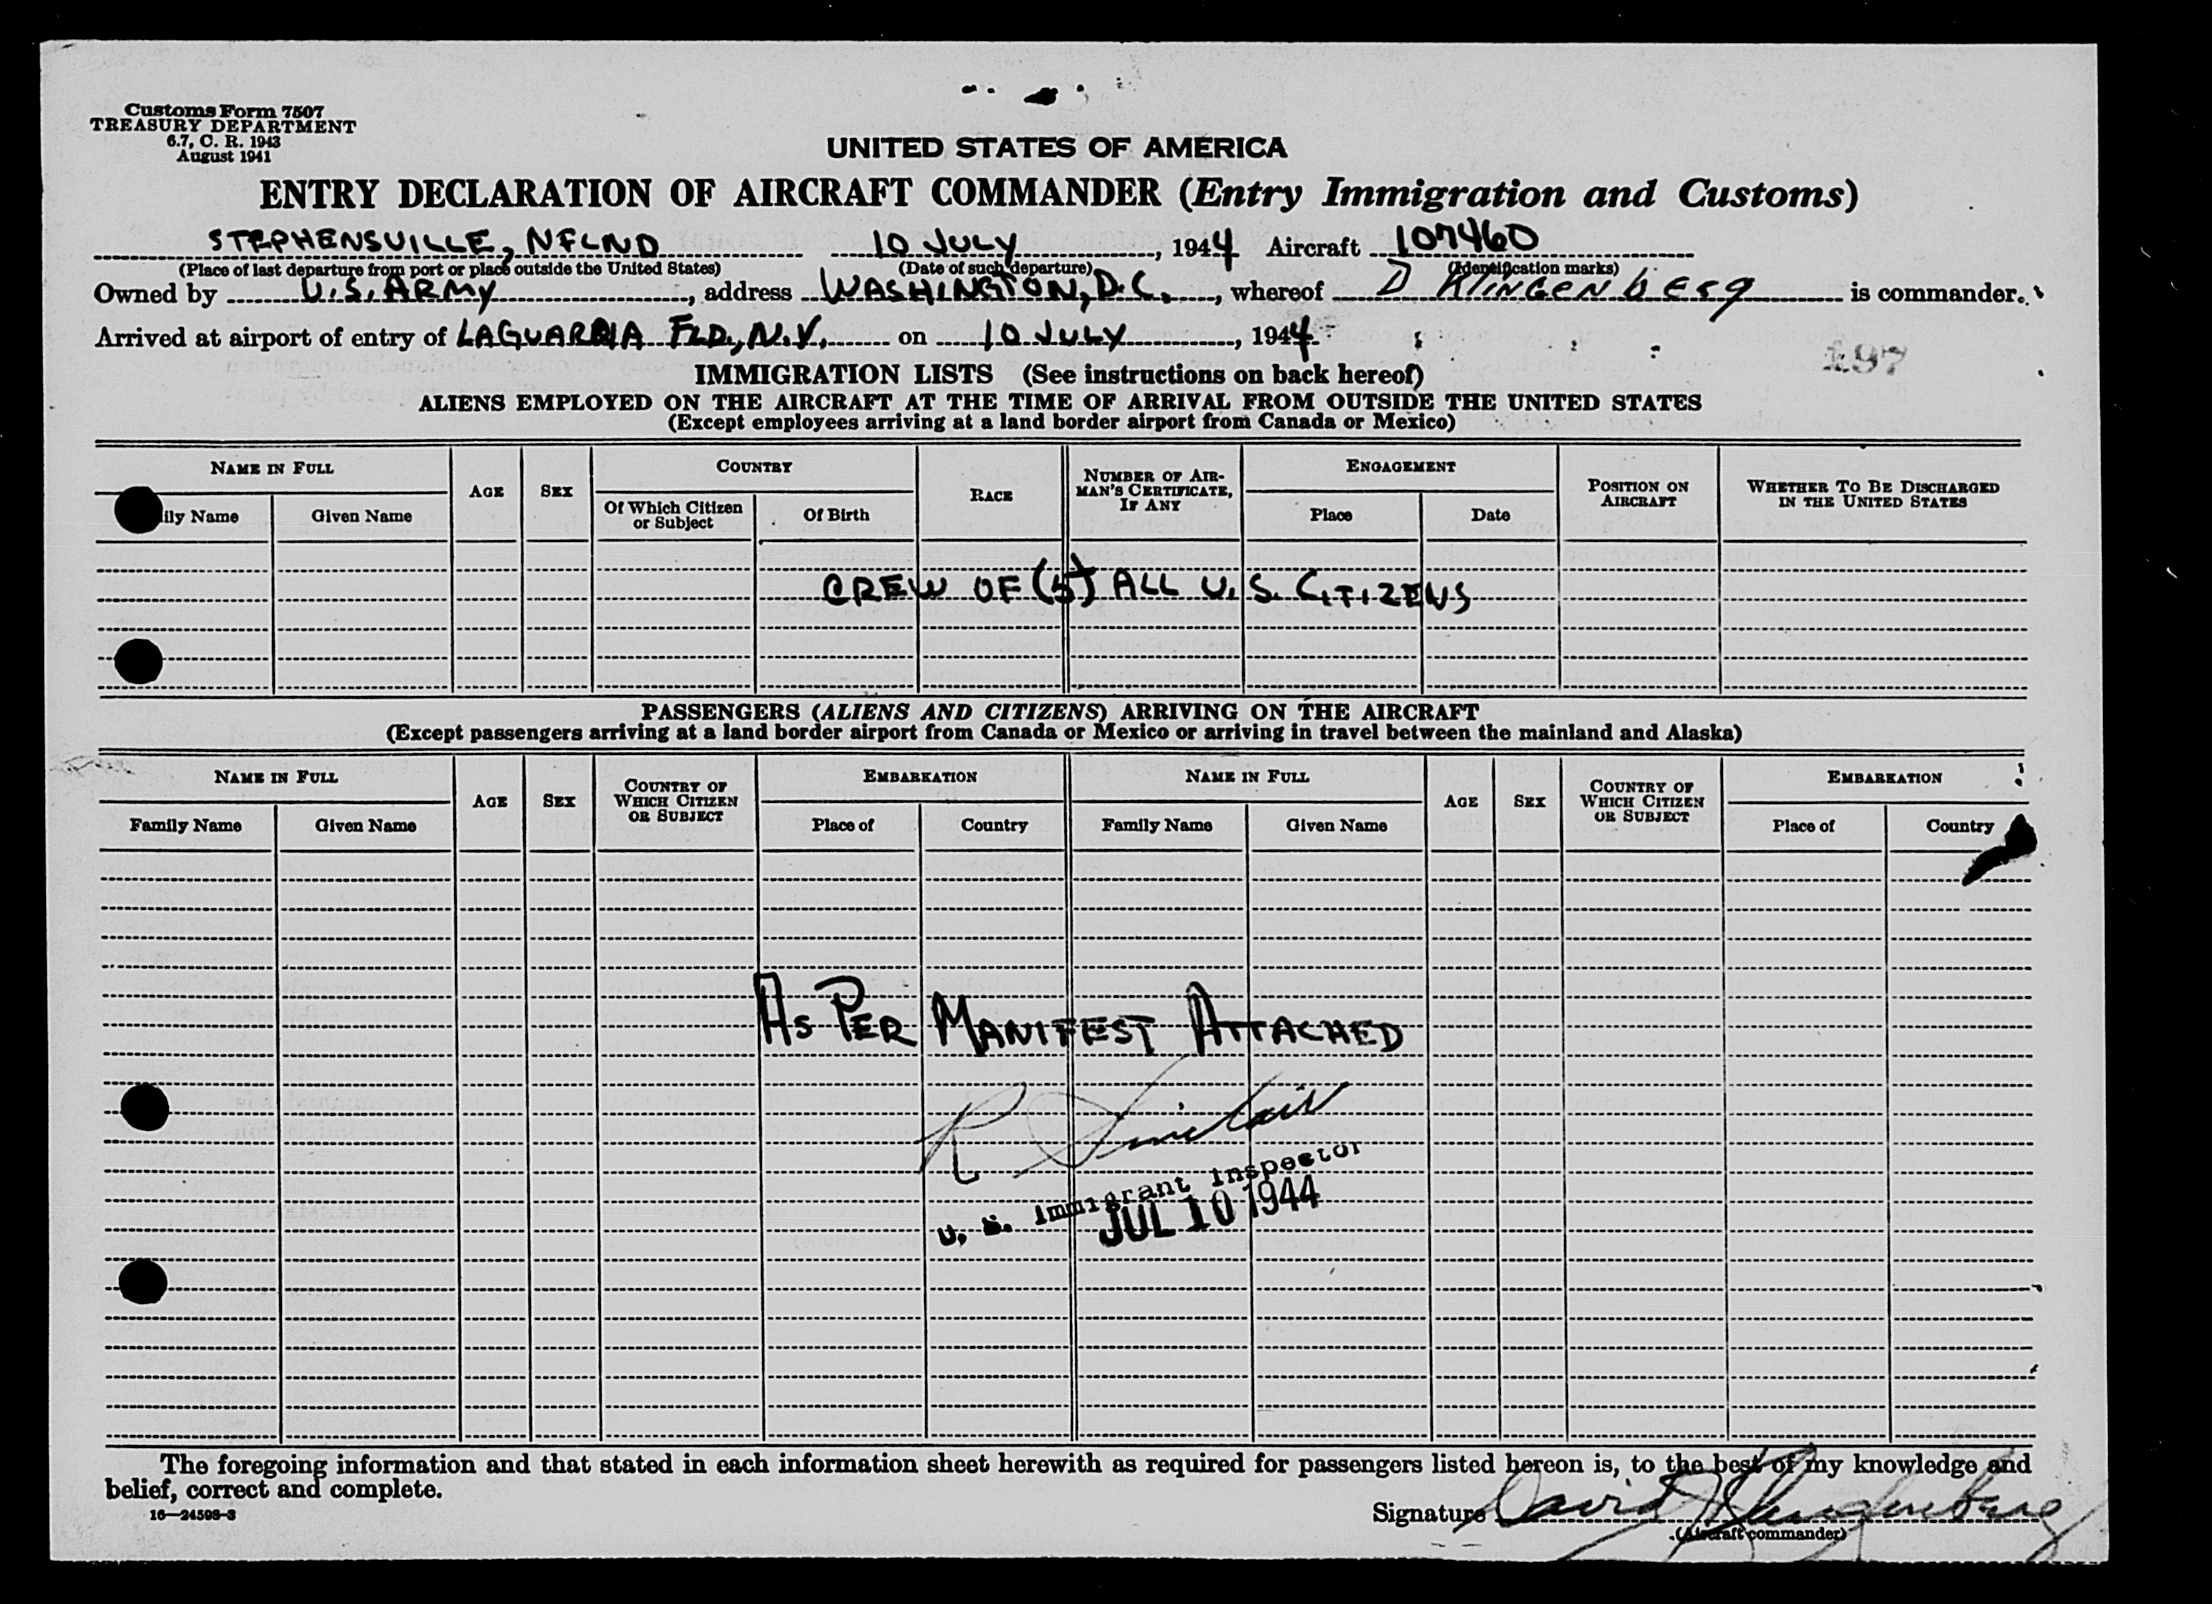 Customs Form 7507
TREASURY DEPARTMENT
6.7, C. R. 1943
August 1941
UNITED STATES OF AMERICA
ENTRY DECLARATION OF AIRCRAFT COMMANDER (Entry Immigration and Customs)
STEPHENSVILLE, NFLND 10 JULY, 1944 Aircraft 107460
(Place of last departure from port or place outside the United States) (Date of such departure) (Identification marks)
Owned by U.S. ARMY, address WASHINGTON, D.C., whereof D KlingenbErg is commander.
Arrived at airport of entry of LAGUARDIA FLD., N.Y. on 10 JULY, 1944.
197
IMMIGRATION LISTS (See instructions on back hereof)
ALIENS EMPLOYED ON THE AIRCRAFT AT THE TIME OF ARRIVAL FROM OUTSIDE THE UNITED STATES
(Except employees arriving at a land border airport from Canada or Mexico)
NAME IN FULL AGE SEX COUNTRY RACE NUMBER OF AIRMAN'S CERTIFICATE, IF ANY ENGAGEMENT POSITION ON AIRCRAFT WHETHER TO BE DISCHARGED IN THE UNITED STATES
ily Name Given Name Of Which Citizen or Subject Of Birth Place Date
CREW OF (5) ALL U.S. CITIZENS
PASSENGERS (ALIENS AND CITIZENS) ARRIVING ON THE AIRCRAFT
(Except passengers arriving at a land border airport from Canada or Mexico or arriving in travel between the mainland and Alaska)
NAME IN FULL AGE SEX COUNTRY OF WHICH CITIZEN OR SUBJECT EMBARKATION NAME IN FULL AGE SEX COUNTRY OF WHICH CITIZEN OR SUBJECT EMBARKATION
Family Name Given Name Place of Country Family Name Given Name Place of Country
AS PER MANIFEST ATTACHED
R Sinclair
U. S. Immigrant Inspector
JUL 10 1944
The foregoing information and that stated in each information sheet herewith as required for passengers listed hereon is, to the best of my knowledge and
belief, correct and complete.
16—24598-3
Signature David Klingenberg
(Aircraft commander)